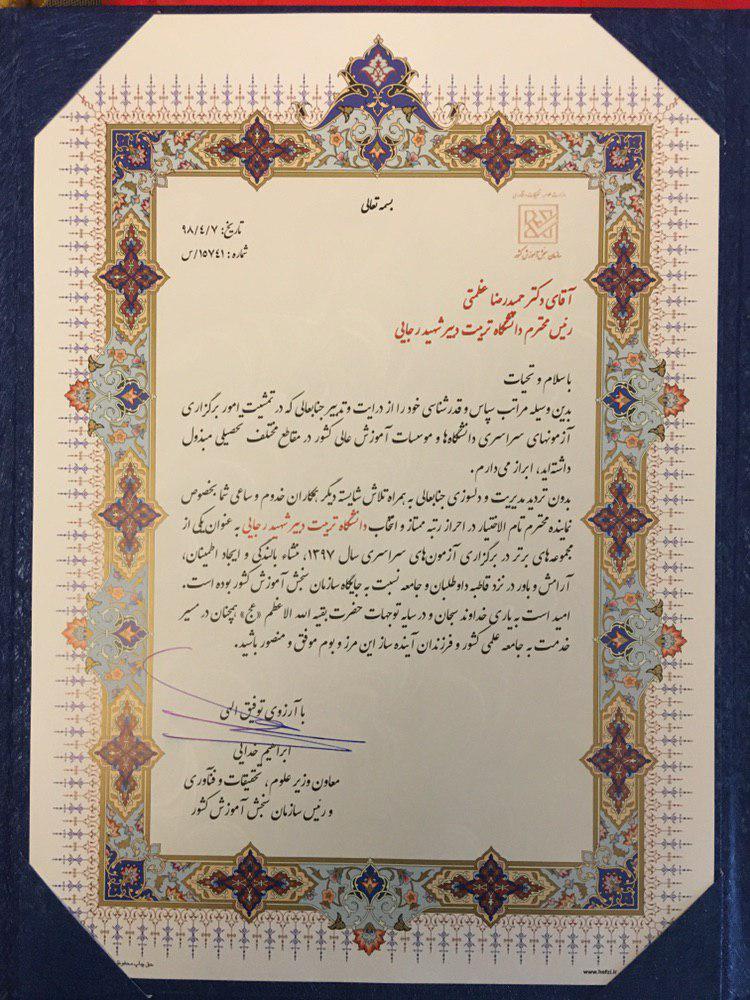 بسمه تعالی
وزارت علوم، تحقیقات و فناوری
سازمان سنجش آموزش کشور
تاریخ: ۹۸/۴/۷
شماره: ۱۵۷۴۱/س
آقای دکتر حمیدرضا عظمتی
رئیس محترم دانشگاه تربیت دبیر شهید رجایی
با سلام و تحیات
بدین وسیله مراتب سپاس و قدرشناسی خود را از درایت و تدبیر جنابعالی که در تمشیت امور برگزاری
آزمونهای سراسری دانشگاه‌ها و موسسات آموزش عالی کشور در مقاطع مختلف تحصیلی مبذول
داشته‌اید، ابراز می‌دارم.
بدون تردید مدیریت و دلسوزی جنابعالی به همراه تلاش شایسته دیگر همکاران خدوم و ساعی شما بخصوص
نماینده محترم تام الاختیار در احراز رتبه ممتاز و انتخاب دانشگاه تربیت دبیر شهید رجایی به عنوان یکی از
مجموعه‌های برتر در برگزاری آزمون‌های سراسری سال ۱۳۹۷، منشاء بالندگی و ایجاد اطمینان،
آرامش و باور در نزد قاطبه داوطلبان و جامعه نسبت به جایگاه سازمان سنجش آموزش کشور بوده است.
امید است به یاری خداوند سبحان و در سایه توجهات حضرت بقیه الله الاعظم «عج» همچنان در مسیر
خدمت به جامعه علمی کشور و فرزندان آینده ساز این مرز و بوم موفق و منصور باشید.
با آرزوی توفیق الهی
ابراهیم خدایی
معاون وزیر علوم، تحقیقات و فنّاوری
و رئیس سازمان سنجش آموزش کشور
www.hafzi.ir